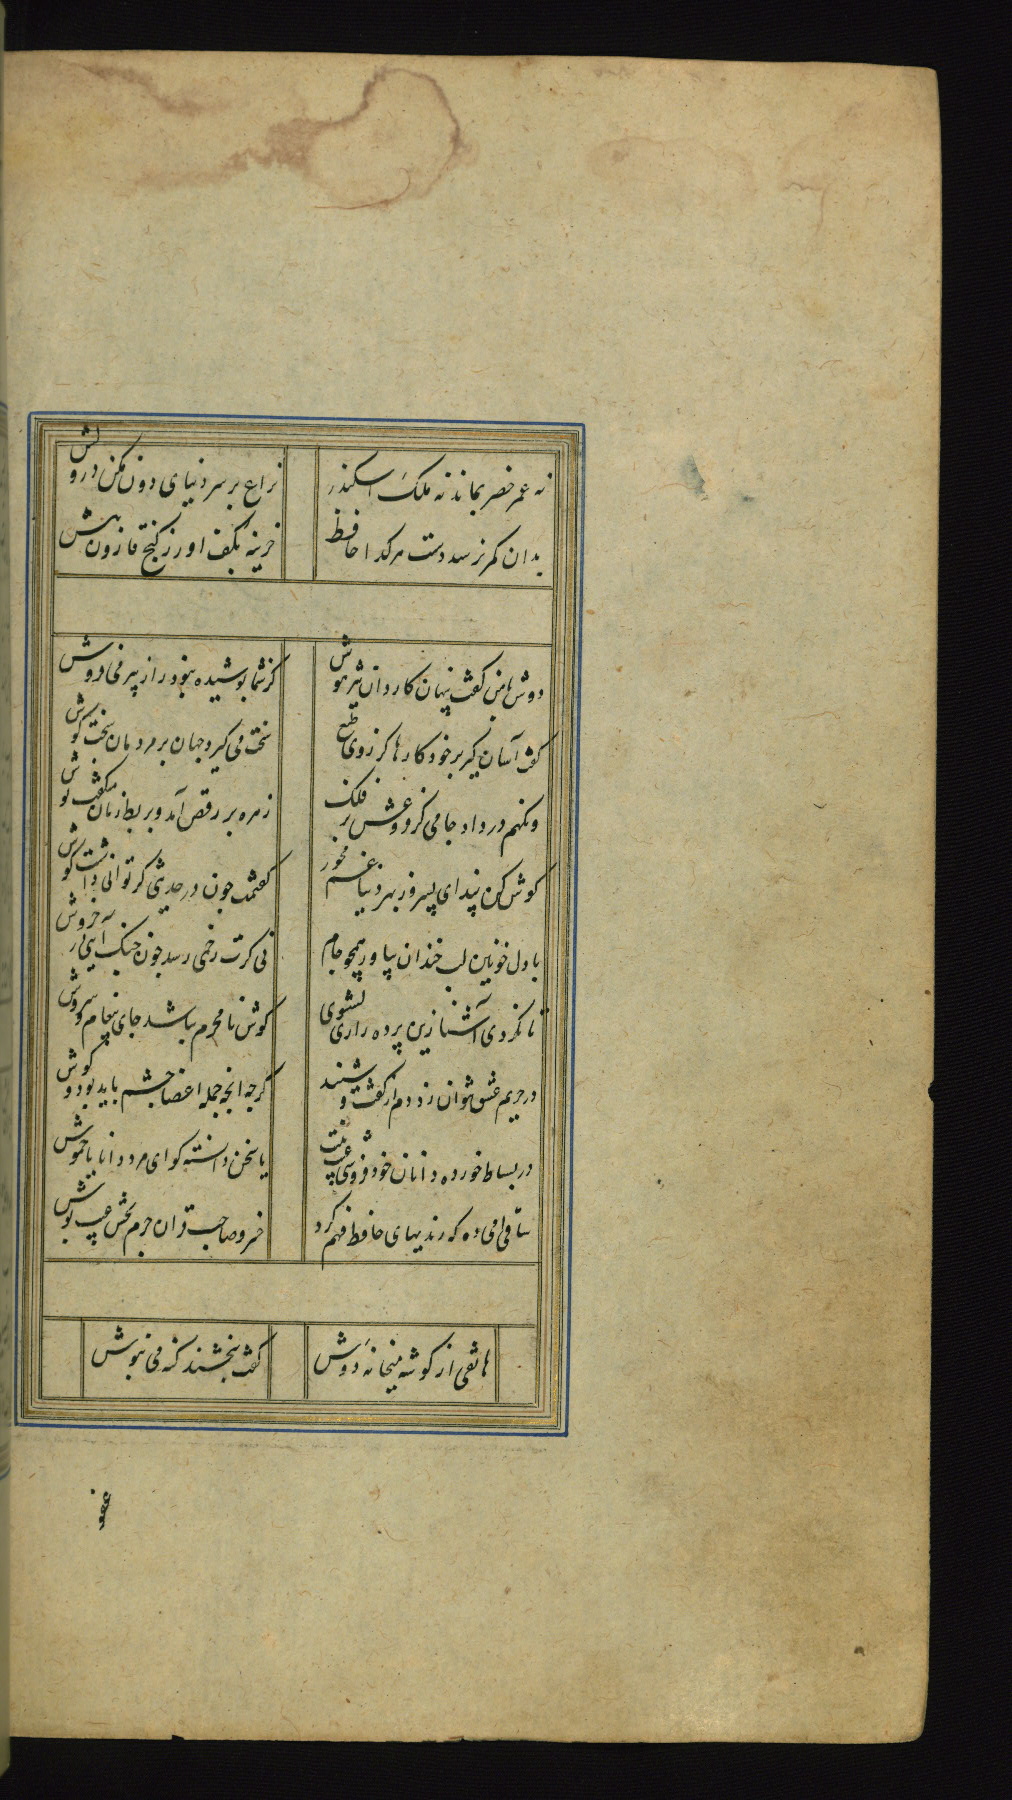 نه عمر خضر بماند نه ملک اسکندر
نزاع بر سر دنیای دون مکن درویش
بدان کمر نرسد دست هر کدا حافظ
خزینه بکف اور ز کنج قارون بیش
دوش با من کفت پنهان کاردان تیز هوش
کز شما پوشیده نبود راز پیر می فروش
کفت آسان کیر بر خود کارها کز روی طبع
سخت می کیرد جهان بر مردمان سخت کوش
وانکهم در داد جامی کز فروغش بر فلک
زهره بر رقص آمد و بربط زنان میکفت نوش
کوش کن پند ای پسر وز بهر دنیا غم مخور
کفتمت چون در حدیثی کر توانی داشت کوش
با دل خونین لب خندان بیاور همچو جام
نی کرت زخمی رسد چون چنک آیی در خروش
تا نکردی آشنا زین پرده رازی نشنوی
کوش نامحرم نباشد جای پیغام سروش
در حریم عشق نتوان زد دم از کفت و شنید
کرچه انجه جمله اعضا چشم باید بود و کوش
در بساط خورده دانان خود فروشی عیب نیست
یا سخن دانسته کو ای مرد دانا یا خموش
ساقیا می ده که رندیهای حافظ فهم کرد
خسرو صاحب قران جرم بخش عیب پوش
هاتفی از کوشه میخانه دوش
کفت ببخشند کنه می بنوش
عفو